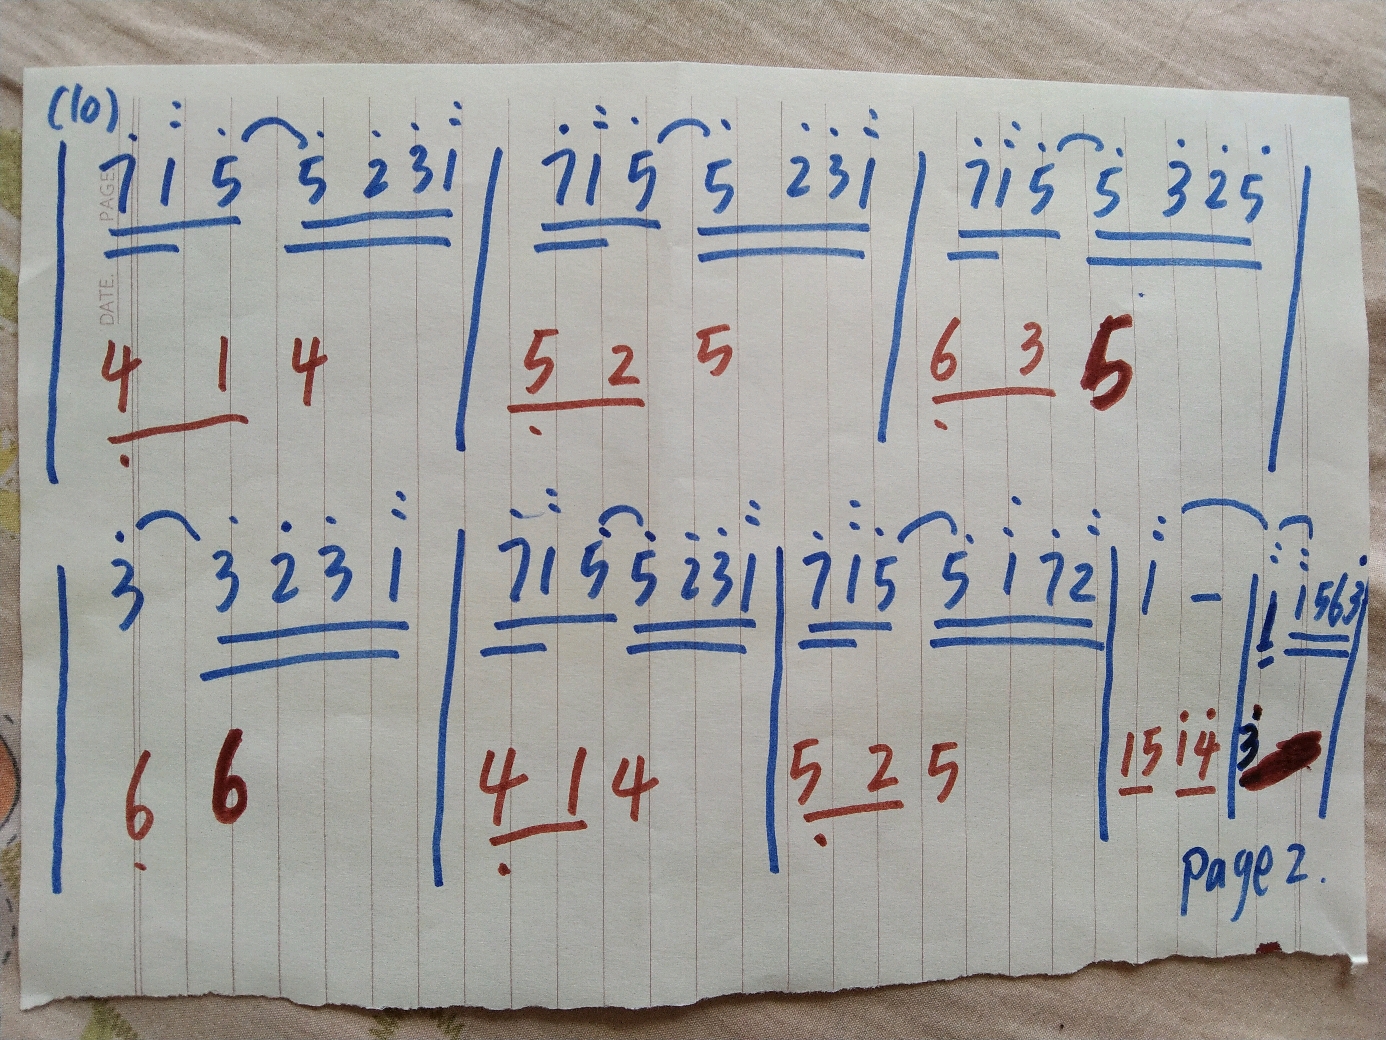 (10)
| 7̇ 1̈ 5̇ 5̇ 2̇ 3̇ 1̈ | 7̇ 1̈ 5̇ 5̇ 2̇ 3̇ 1̈ | 7̇ 1̈ 5̇ 5̇ 3̇ 2̇ 5̇ |
4̣ 1 4 5̣ 2 5 6̣ 3 5
| 3̇ 3̇ 2̇ 3̇ 1̈ | 7̇ 1̈ 5̇ 5̇ 2̇ 3̇ 1̈ | 7̇ 1̈ 5̇ 5̇ 1̇ 7̇ 2̈ | 1̈ – | 1̈ 1̈ 5 6 3̇ |
6̣ 6 4̣ 1 4 5̣ 2 5 1 5 1̇ 4̇ 3̇
Page 2.
DATE. PAGE